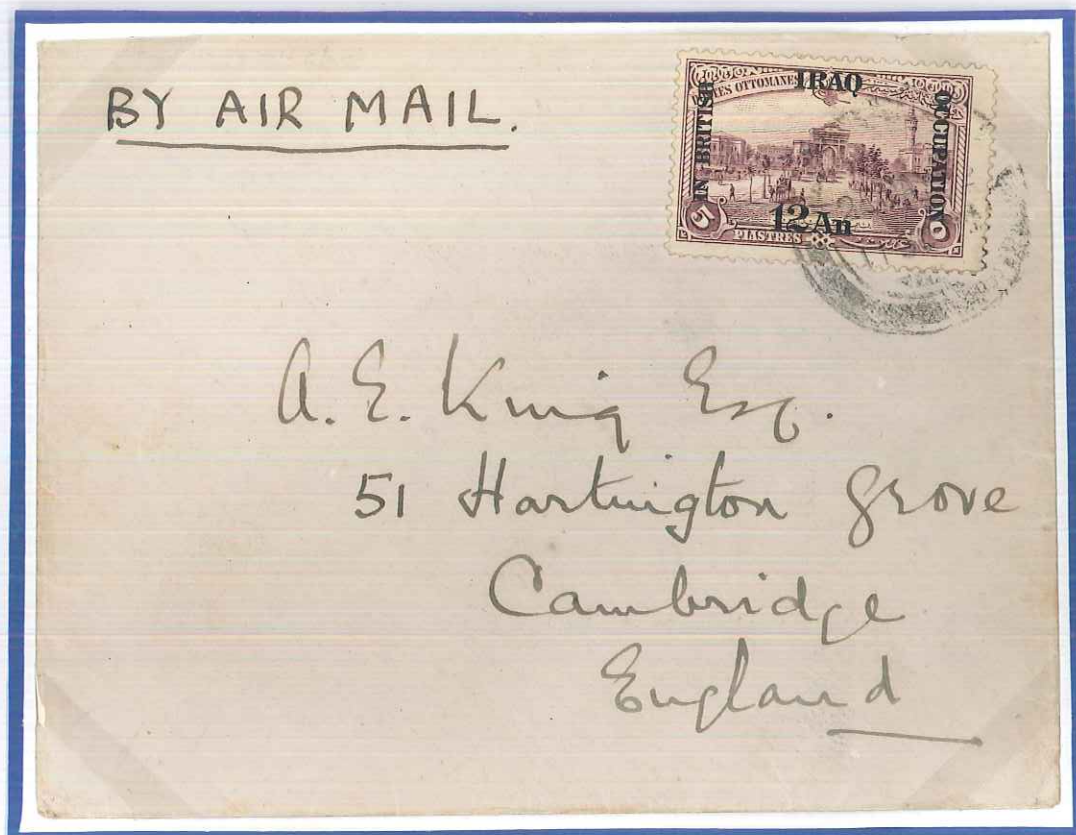 BY AIR MAIL.
POSTES OTTOMANES
IRAQ
IN BRITISH
OCCUPATION
12 An
5
PIASTRES
A. E. King Esq.
51 Hartington Grove
Cambridge
England